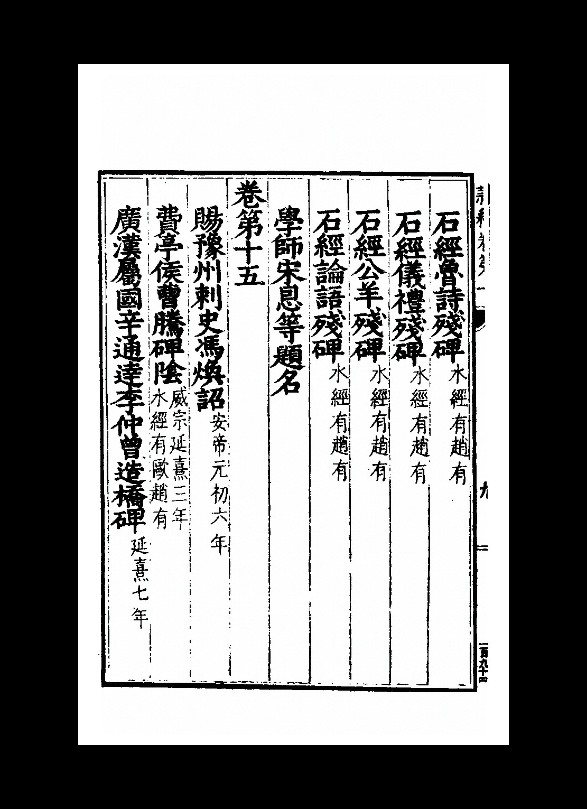 石經魯詩殘碑水經有趙有
石經儀禮殘碑水經有趙有
石經公羊殘碑水經有趙有
石經論語殘碑水經有趙有
學師宋恩等題名
卷第十五
賜豫州刺史馮煥詔安帝元初六年
費亭侯曹騰碑陰威宗延熹三年
水經有歐趙有
廣漢屬國辛通達李仲曾造橋碑延熹七年
九